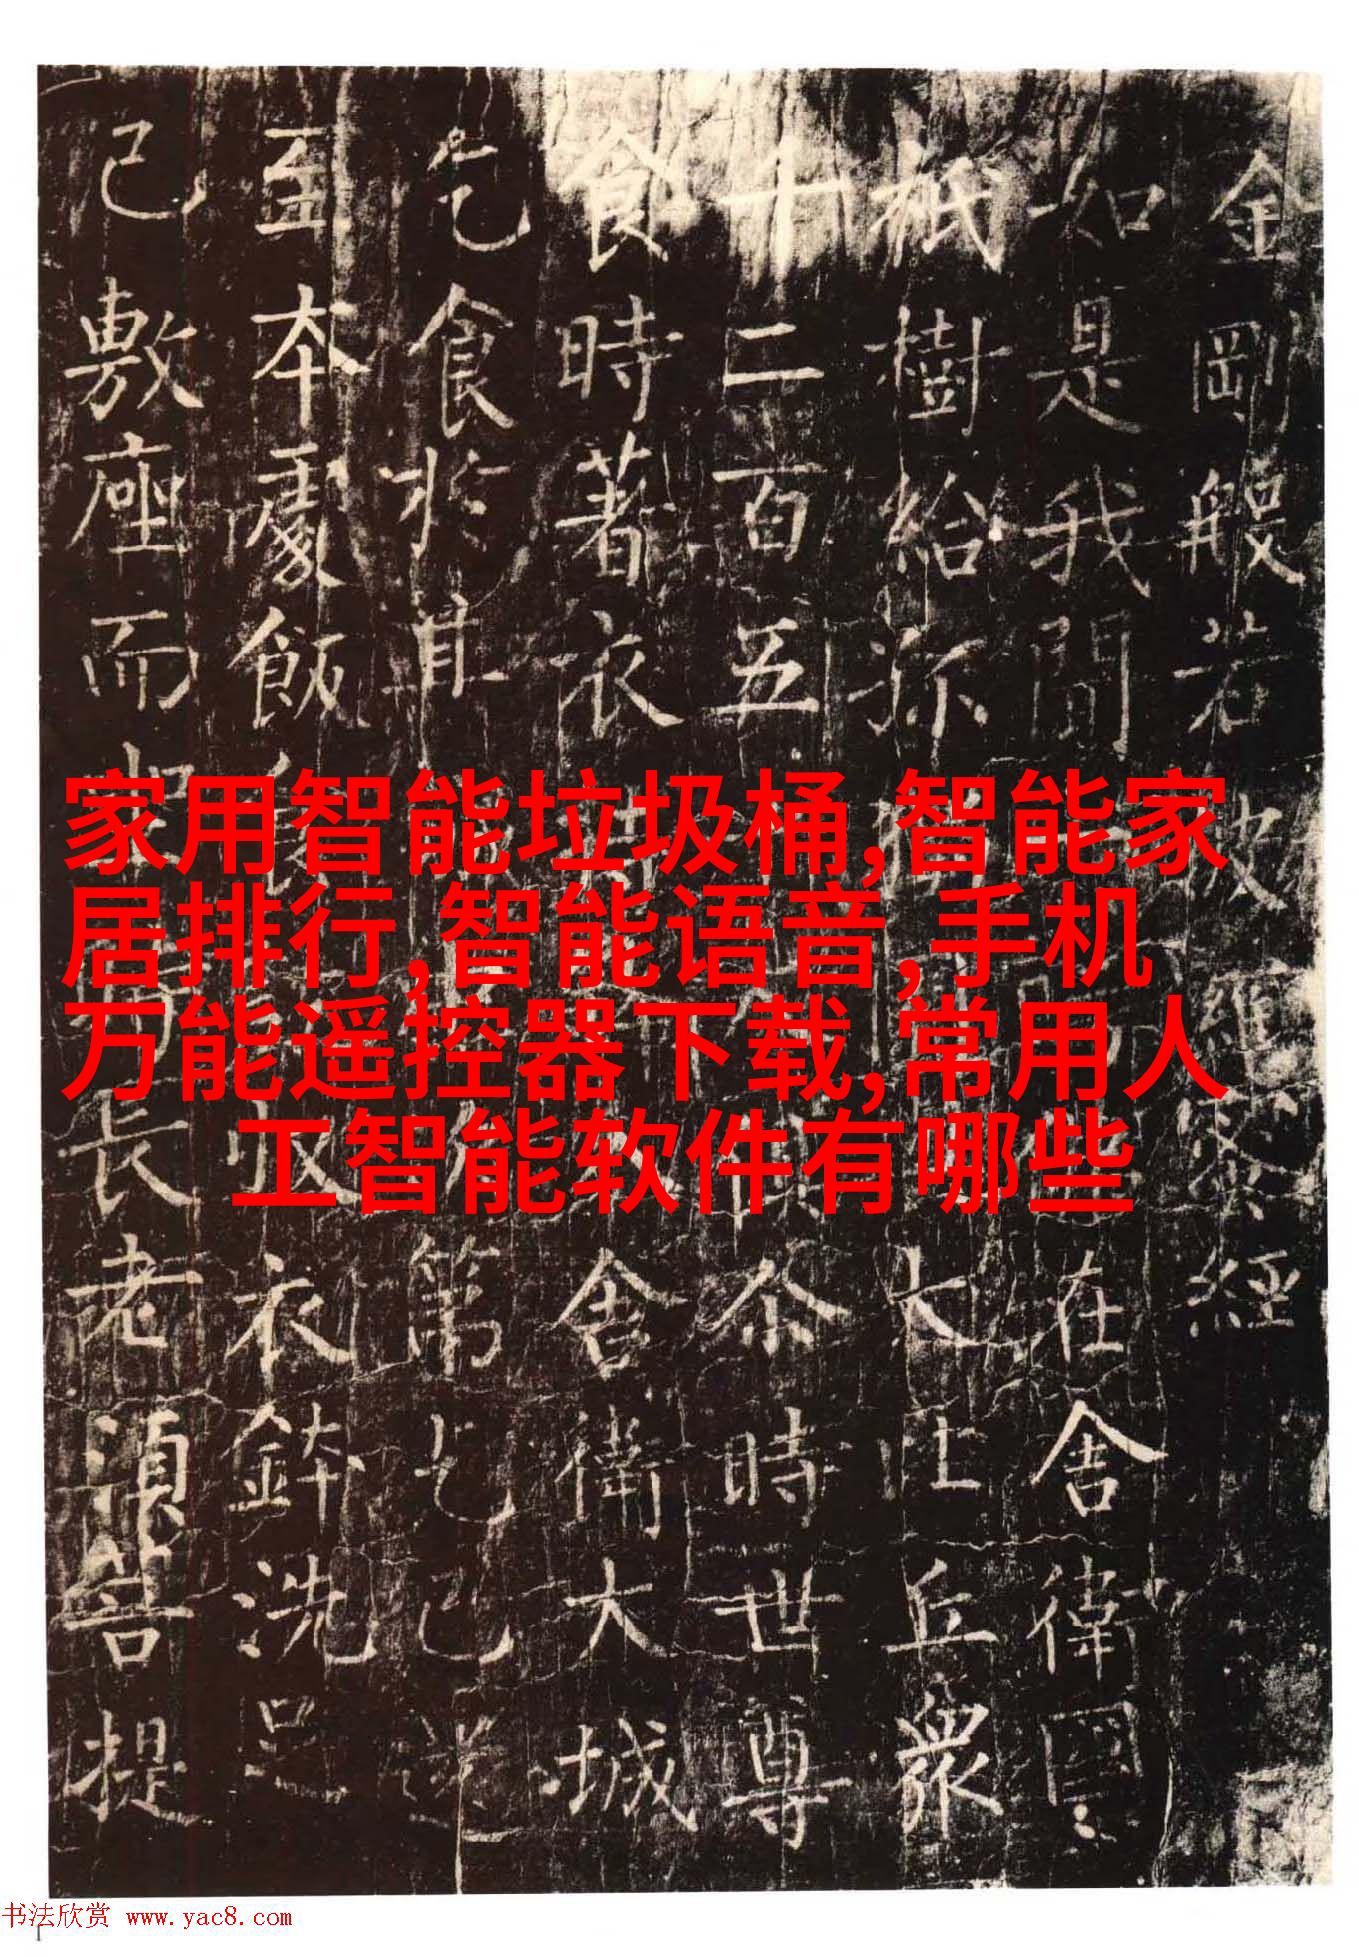 金剛般若波羅蜜經
如是我聞在舍衛國
祇樹給孤大比丘眾
十二百五尒時世尊
食時著衣舍衛大城
乞食於其第乞已還
至本處飯衣鉢洗足
已敷座而長老須菩提
家用智能垃圾桶,智能家
居排行,智能语音,手机
万能遥控器下载,常用人
工智能软件有哪些
书法欣赏 www.yac8.com